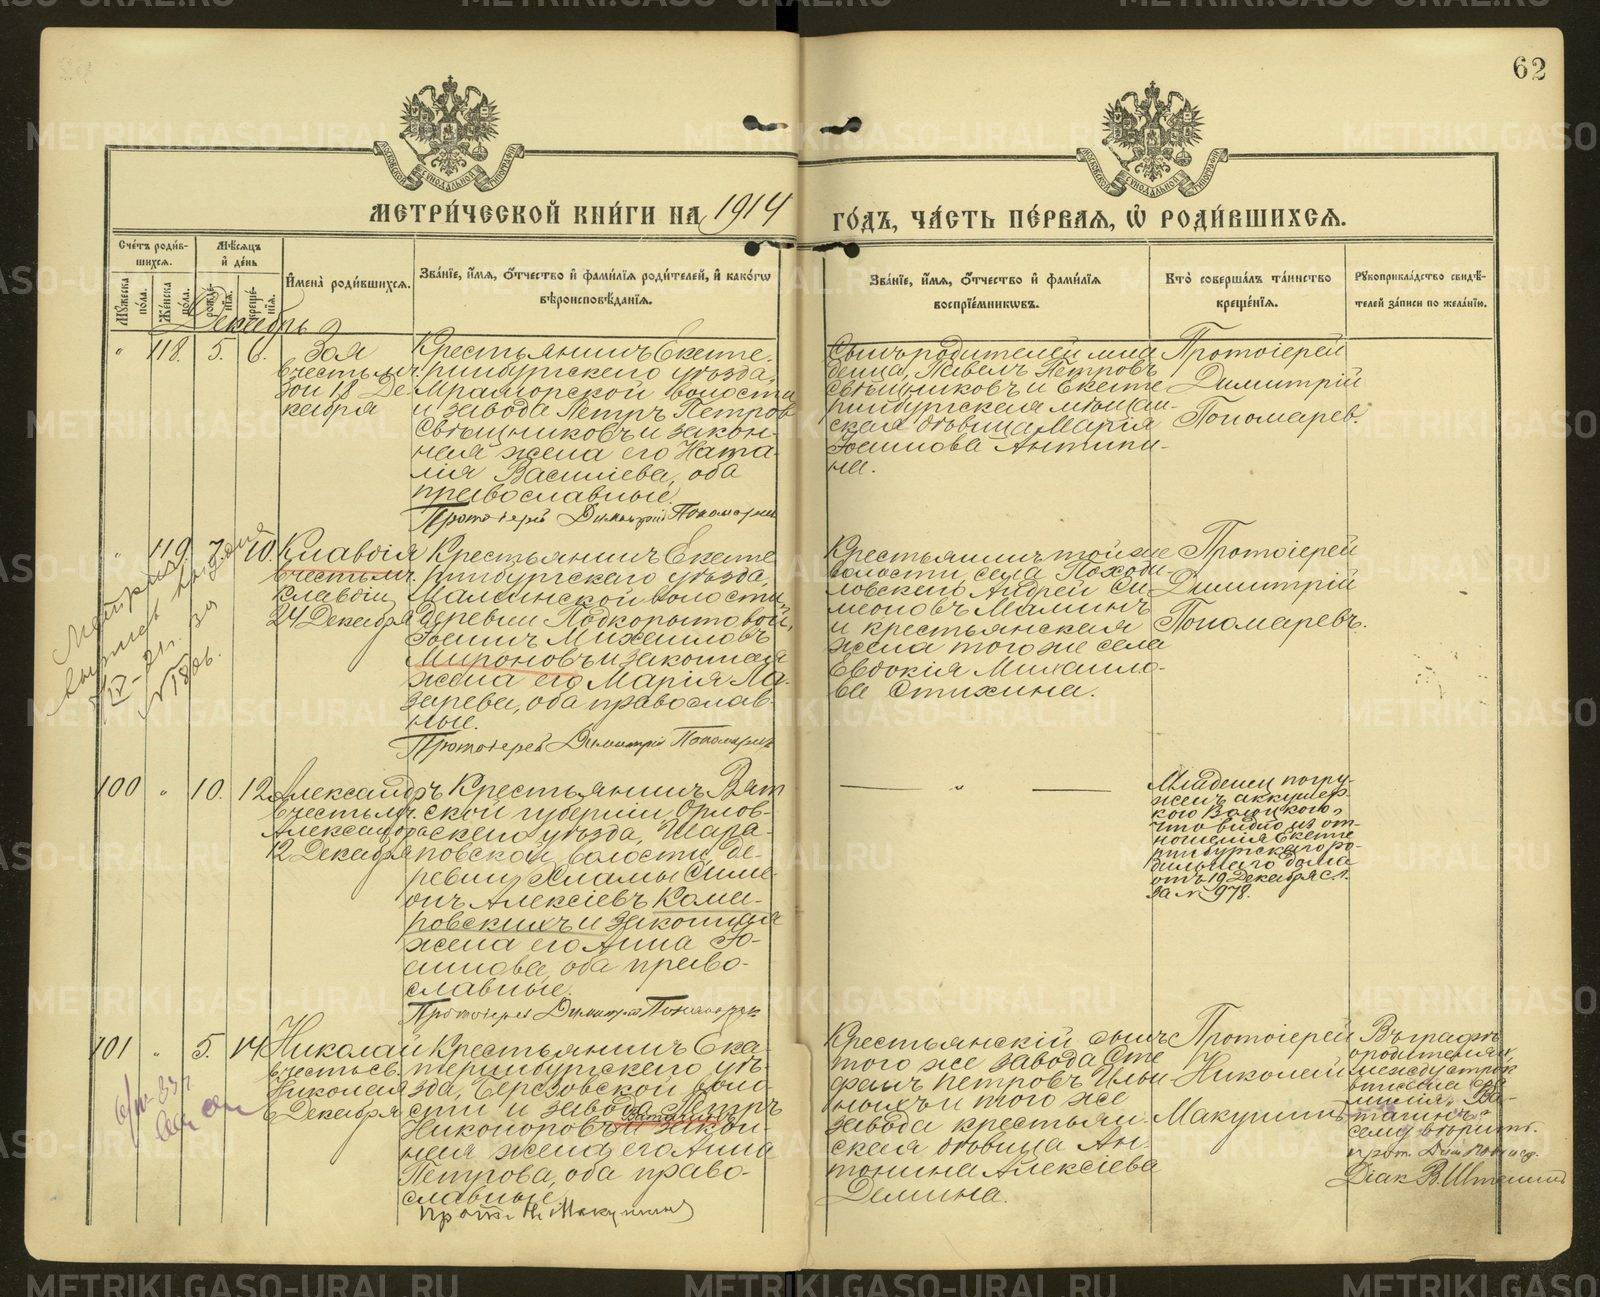 62
МЕТРИ́ЧЕСКОЙ КНИ́ГИ НА 1914
ГО́ДЪ, ЧА́СТЬ ПЕ́РВАЯ, Ѡ҆ РОДИ́ВШИХСЯ.
Сче́тъ роди́вшихся.
Му́жеска по́ла.
Же́нска по́ла.
Мѣ́сяцъ и҆ де́нь
рожде́нїя.
креще́нїя.
И҆мена̀ роди́вшихся.
Зва́нїе, и҆́мя, ѻ҆́тчество и҆ фами́лїя роди́телей, и҆ како́гѡ
вѣроисповѣ́данїя.
Зва́нїе, и҆́мя, ѻ҆́тчество и҆ фами́лїя
воспрїе́мниковъ.
Кто̀ соверша́лъ та́инство
креще́нїя.
Рꙋкоприкла́дство свидѣ́-
телей за́писи по жела́нїю.
Декабрь
" 118. 5. 6.
Зоя
в честь мч.
Зои 18 Де-
кабря
Крестьянинъ Екате-
ринбургскаго уѣзда,
Мраморской волости
и завода Петръ Петровъ
Свѣщниковъ и закон-
ная жена его Ната-
лія Василіева, оба
православные.
Протоіерей Димитрій Пономаревъ
Сынъ родителей мла-
денца, Павелъ Петровъ
Свѣщниковъ и Екате-
ринбургская мѣщан-
ская дѣвица Марія
Іоаннова Антипи-
на.
Протоіерей
Димитрій
Пономарев.
" 119 7. 10.
Клавдія
в честь мч.
Клавдіи
24 Декабря
Крестьянинъ Екате-
ринбургскаго уѣзда,
Маминской волости,
деревни Подкорытовой,
Іоаннъ Михаиловъ
Мироновъ и законная
жена его Марія Ла-
зарева, оба православ-
ные.
Протоіерей Димитрій Пономаревъ
Крестьянинъ той же
волости, села Походи-
ловскаго Андрей Си-
меоновъ Маминъ
и крестьянская
жена того же села
Евдокія Михаило-
ва Стихина.
Протоіерей
Димитрій
Пономаревъ.
Метрика
100 " 10. 12.
Александръ
в честь мч.
Александра
12 Декабря
Крестьянинъ Вят-
ской губерніи, Орлов-
скаго уѣзда, Шара-
повской волости, де-
ревни Хламы Симе-
онъ Алексіевъ Кома-
ровскихъ и законная
жена его Анна Іо-
аннова, оба право-
славные.
Протоіерей Димитрій Пономаревъ
— " —
Младенец погру-
женъ аккушер-
кою Воицкою,
что видно из от-
ношенія Екате-
ринбургскаго ро-
дильнаго дома
отъ 19 Декабря с.г.
за № 978.
101 " 5. 14
Николай
в честь св.
Николая
6 Декабря
Крестьянинъ Ека-
теринбургскаго уѣ-
зда, Березовской воло-
сти и завода Петръ
Никоноровъ Ватагинъ и закон-
ная жена его Анна
Петрова, оба право-
славные.
прот. Н. Макушинъ
Крестьянскій сынъ
того же завода Сте-
фанъ Петровъ Ильи-
ныхъ и того же
завода крестьян-
ская дѣвица Ан-
тонина Алексіева
Демина.
Протоіерей
Николай
Макушинъ
Въ графѣ
о родителях
между строк
вписана фа-
милія „Ва-
тагинъ"
сему вѣрить.
прот. Дим. Поном.
Діак. В.